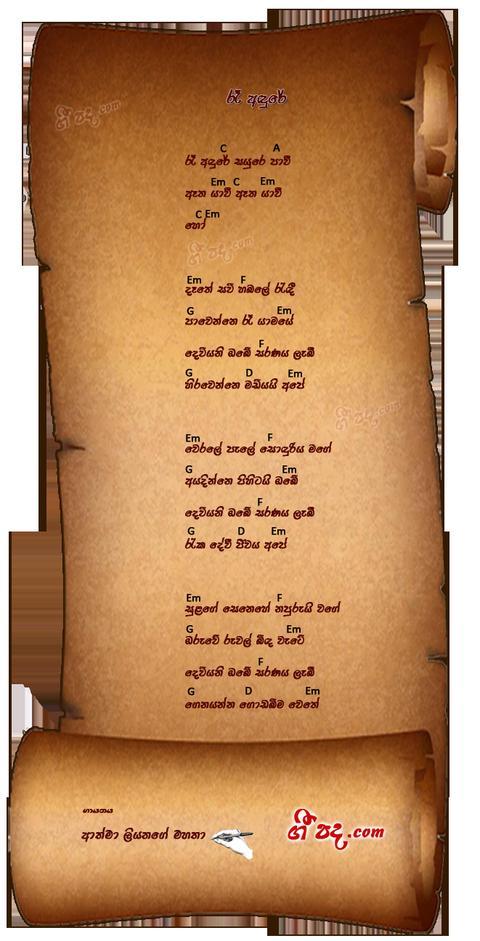 රෑ අඳුරේ
ගී පද.com
C A
රෑ අඳුරේ සයුරේ පාවී
Em C Em
ඈත යාවී ඈත යාවී
C Em
හෝ
ගී පද.com
Em F
දෑතේ සවි හබලේ රැඳී
G Em
පාවෙන්නෙ රෑ යාමයේ
F
දෙවියනි ඔබේ සරණය ලැබී
G D Em
හිරවෙන්නෙ මඩියයි අපේ
ගී පද.com
Em F
වෙරලේ පැලේ සොඳුරිය මගේ
G Em
අයදින්නෙ පිහිටයි ඔබේ
F
දෙවියනි ඔබේ සරණය ලැබී
G D Em
රැක දේවි ජීවය අපේ
Em F
සුළගේ සෙනෙහේ නපුරුයි වගේ
G Em
ඔරුවේ රුවල් බිඳ වැටේ
F
දෙවියනි ඔබේ සරණය ලැබී
G D Em
ගෙනයන්න ගොඩබිම වෙතේ
ගායනය
ආත්මා ලියනගේ මහතා
ගී පද.com